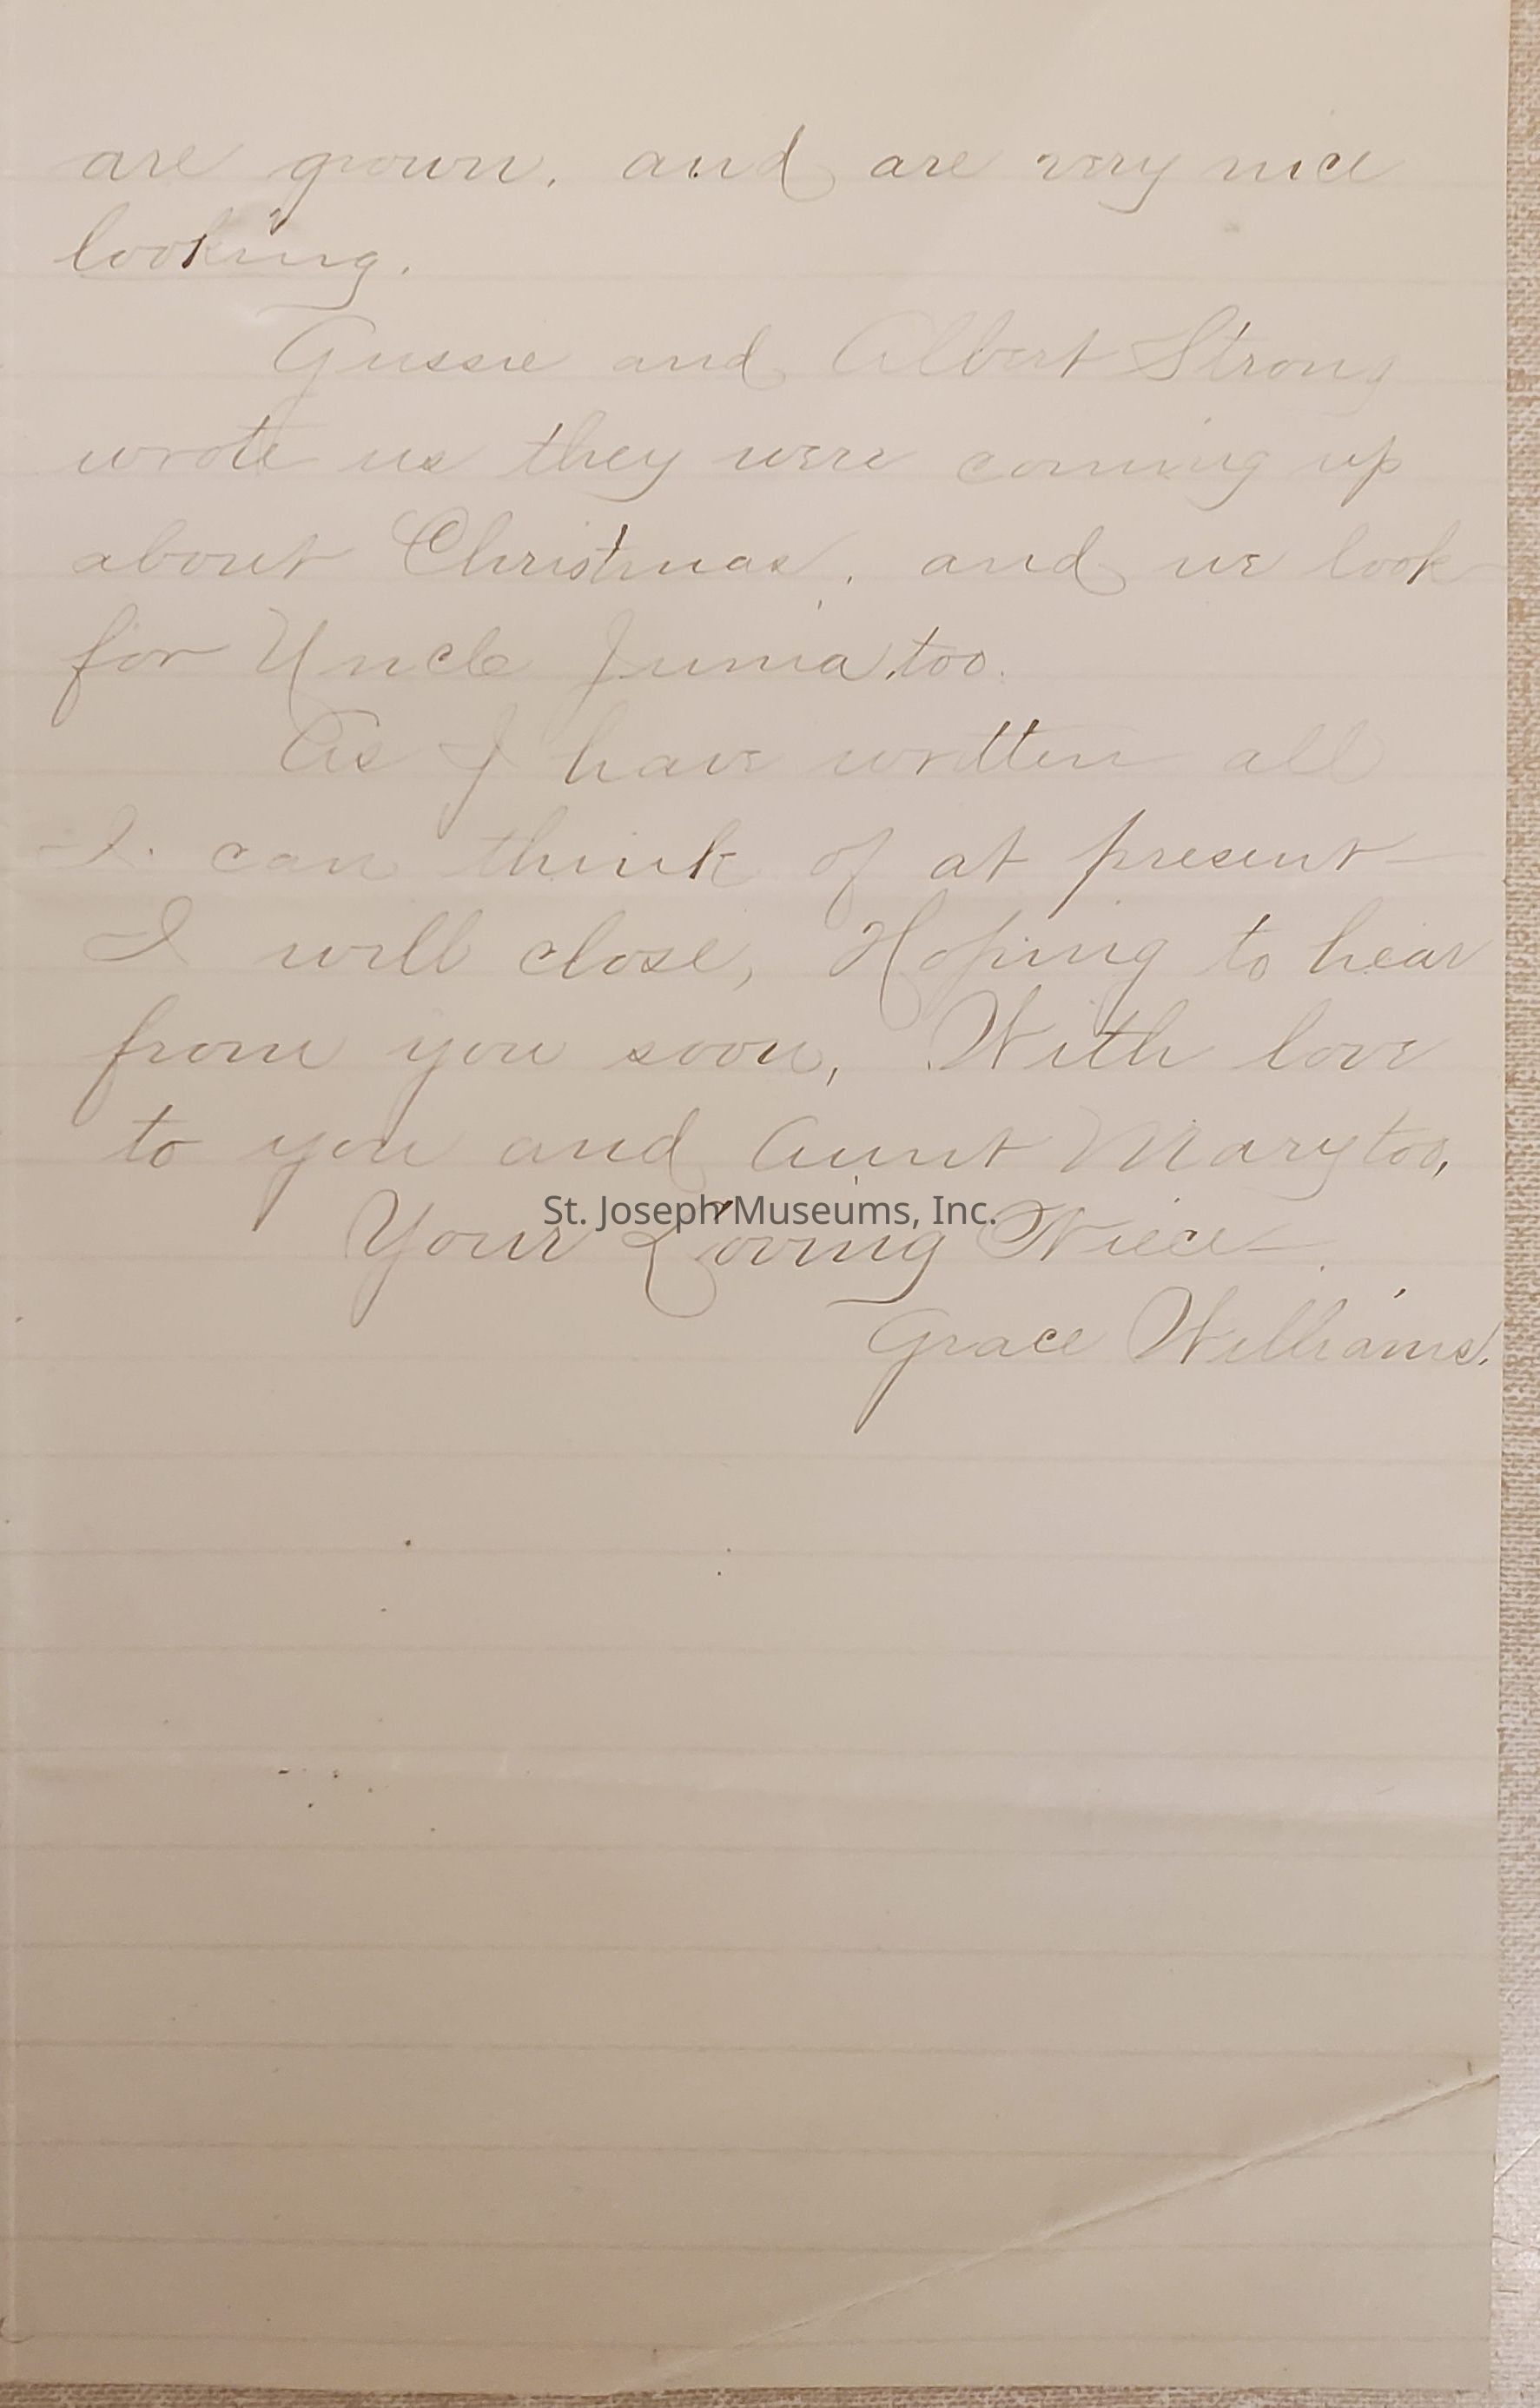 are grown, and are very nice
looking.
Gussie and Albert Strong
wrote us they were coming up
about Christmas, and we look
for Uncle Junia, too.
As I have written all
I can think of at present
I will close, Hoping to hear
from you soon, With love
to you and Aunt Mary too,
St. Joseph Museums, Inc.
Your Loving Niece
Grace Williams.